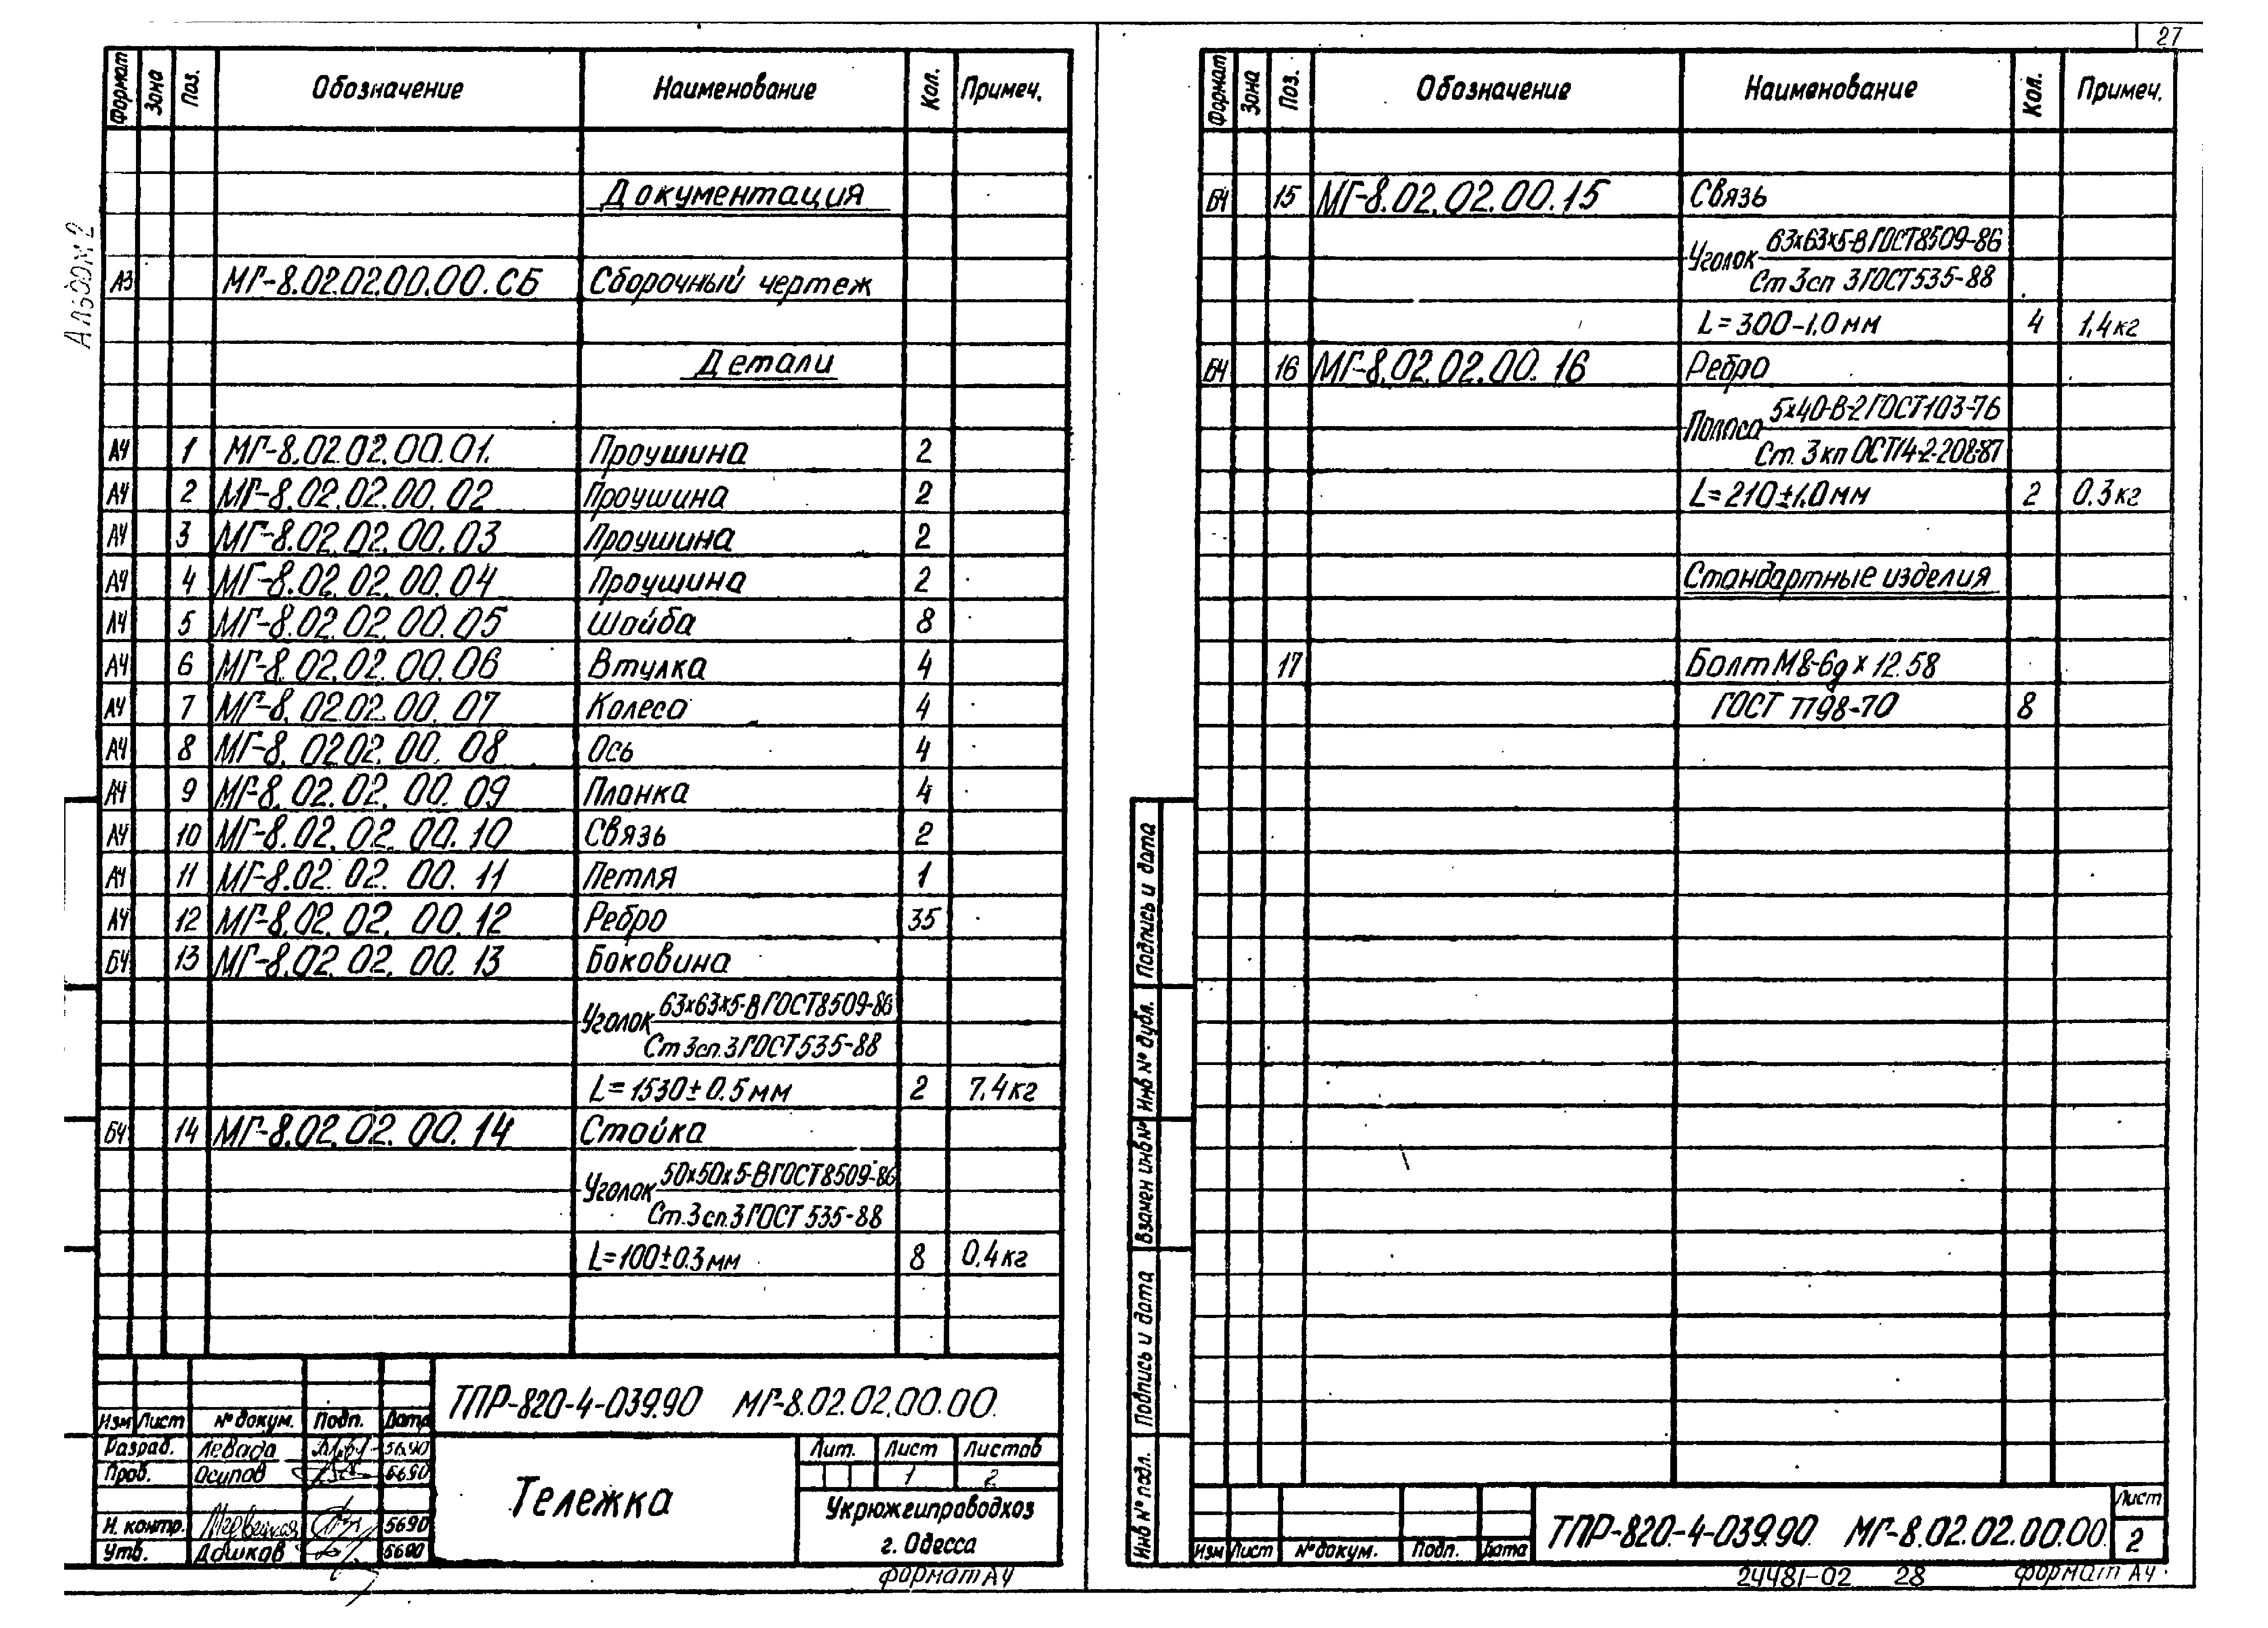 27
Альбом 2
Формат Зона Поз. Обозначение Наименование Кол. Примеч.
Документация
А3 МГ-8.02.02.00.00.СБ Сборочный чертеж
Детали
А4 1 МГ-8.02.02.00.01. Проушина 2
А4 2 МГ-8.02.02.00.02 Проушина 2
А4 3 МГ-8.02.02.00.03 Проушина 2
А4 4 МГ-8.02.02.00.04 Проушина 2
А4 5 МГ-8.02.02.00.05 Шайба 8
А4 6 МГ-8.02.02.00.06 Втулка 4
А4 7 МГ-8.02.02.00.07 Колесо 4
А4 8 МГ-8.02.02.00.08 Ось 4
А4 9 МГ-8.02.02.00.09 Планка 4
А4 10 МГ-8.02.02.00.10 Связь 2
А4 11 МГ-8.02.02.00.11 Петля 1
А4 12 МГ-8.02.02.00.12 Ребро 35
БЧ 13 МГ-8.02.02.00.13 Боковина
63х63х5-В ГОСТ8509-86
Уголок
Ст3сп.3ГОСТ535-88
L=1530±0.5мм 2 7.4кг
БЧ 14 МГ-8.02.02.00.14 Стойка
50х50х5-ВГОСТ8509-86
Уголок
Ст.3сп.3ГОСТ 535-88
L=100±0.3мм 8 0.4кг
ТПР-820-4-039.90 МГ-8.02.02.00.00.
Изм Лист № докум. Подп. Дата
Разраб. Левада 5.6.90
Пров. Осипов 5.6.90
Н. контр. Медвецкая 5690
Утв. Дашков 5690
Тележка
Лит. Лист Листов
1 2
Укрюжгипроводхоз
г. Одесса
формат А4
Формат Зона Поз. Обозначение Наименование Кол. Примеч.
БЧ 15 МГ-8.02.02.00.15 Связь
63х63х5-В ГОСТ8509-86
Уголок
Ст3сп 3ГОСТ535-88
L=300-1.0мм 4 1,4кг
БЧ 16 МГ-8.02.02.00.16 Ребро
5х40-В-2ГОСТ103-76
Полоса
Ст.3кп ОСТ14-2-208-87
L=210±1.0мм 2 0.3кг
Стандартные изделия
17 Болт М8-6gх12.58
ГОСТ 7798-70 8
Подпись и дата
Инв № дубл.
Взамен инв №
Подпись и дата
Инв № подл.
Изм Лист № докум. Подп. Дата
ТПР-820-4-039.90 МГ-8.02.02.00.00
Лист
2
24481-02 28 формат А4